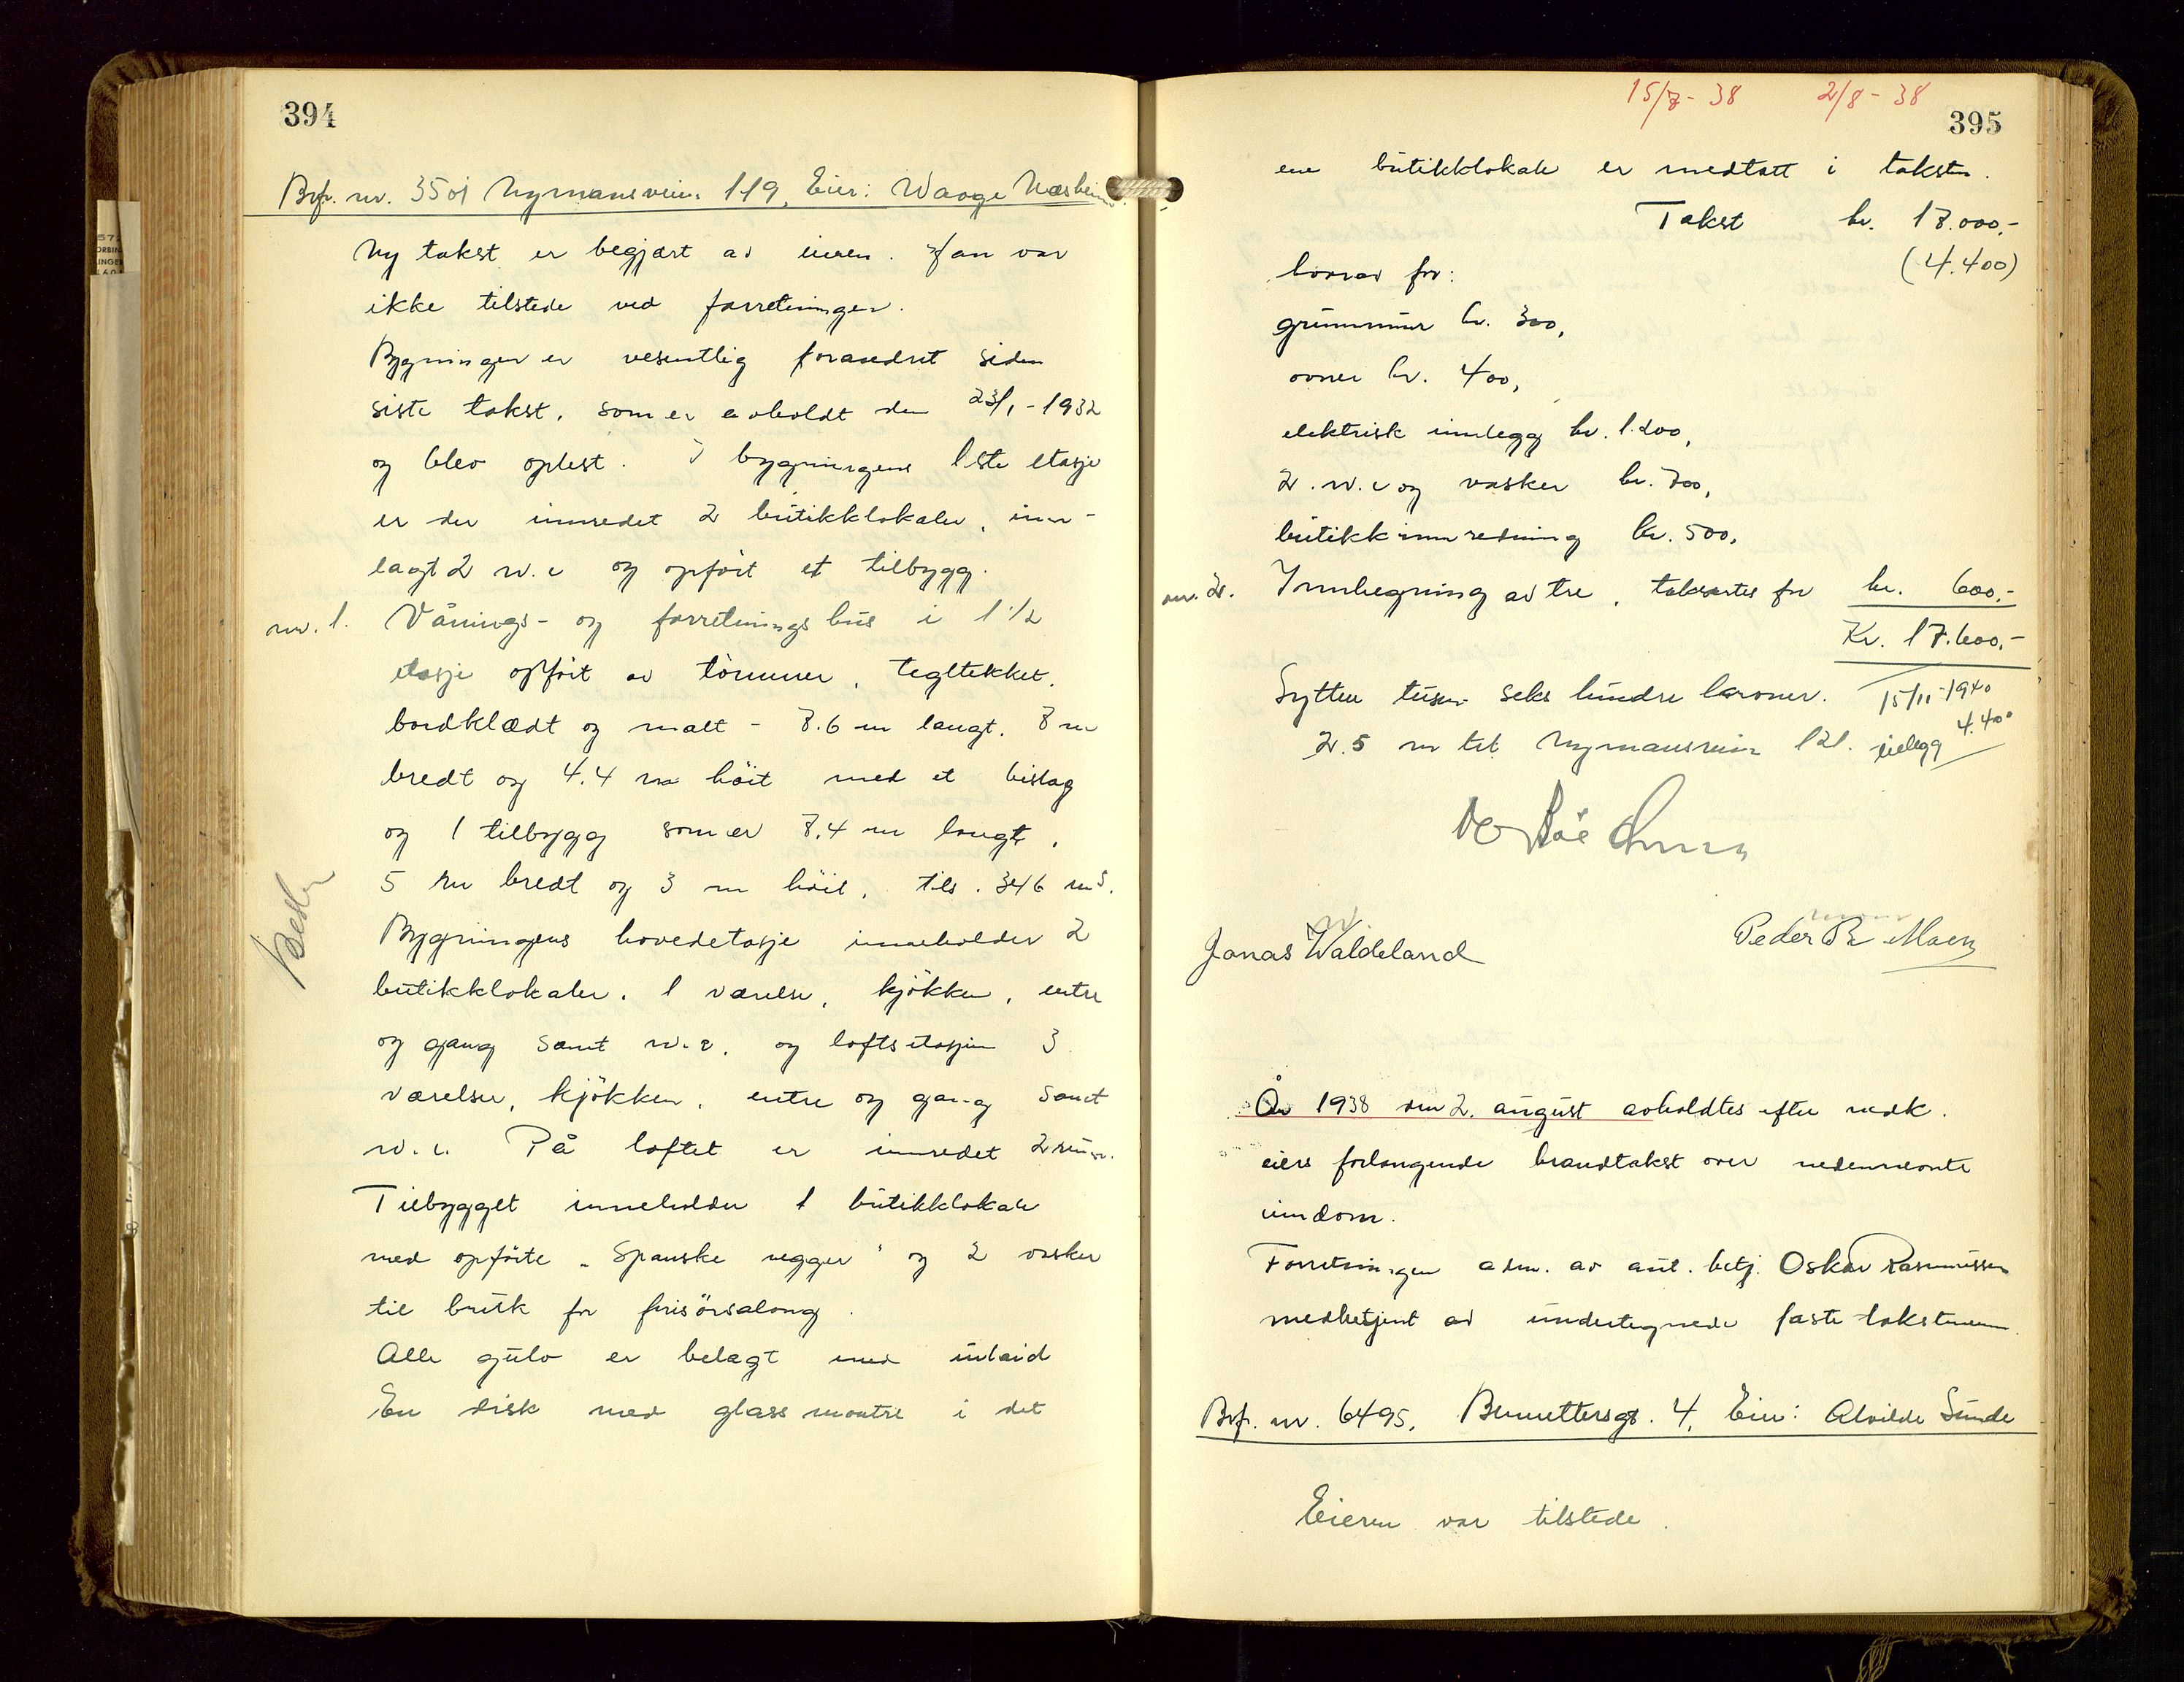 394
Brf. nr. 3501 Nymansveien 119, Eier: Waage Næsheim
Ny takst er begjært av eieren. Han var
ikke tilstede ved forretningen.
Bygningen er vesentlig forandret siden
siste takst, som er avholdt den 23/1-1932
og blev oplest. I bygningens 1ste etasje
er der innredet 2 butikklokaler, inn-
lagt 2 w.c og opført et tilbygg.
nr. 1. Vånings- og forretningshus i 1 1/2
etasje opført av tømmer, tegltekket,
bordklædt og malt - 7.6 m langt, 7 m
bredt og 4.4 m høit med et bislag
og 1 tilbygg som er 7.4 m langt,
5 m bredt og 3 m høit, tils. 346 m3.
Bygningens hovedetasje inneholder 2
butikklokaler, 1 værelse, kjøkken, entre
og gang samt w.c. og loftsetasjen 3
værelser, kjøkken, entre og gang samt
w.c. På loftet er innredet 2 rum.
Tilbygget inneholder 1 butikklokale
med opførte „Spanske vegger" og 2 vasker
til bruk for frisørsalong.
Alle gulv er belagt med inlaid
En disk med glassmontre i det
15/7-38 2/8-38
395
ene butikklokale er medtatt i taksten.
Takst kr. 17.000.-
(4.400)
hvorav for:
grunnmur kr. 300,
ovner kr. 400,
elektrisk innlegg kr. 1.200,
2 w.c og vasker kr. 700,
butikkinnredning kr. 500,
nr. 2. Innhegning av tre, takseres for kr. 600.-
Kr. 17.600.-
Sytten tusen seks hundre kroner. 15/11-1940
2.5 m til Nymansveien 121. 4.400
Jonas Waldeland Peder Moen
År 1938 den 2. august avholdtes efter vedk.
eiers forlangende brandtakst over nedennevnte
eiendom.
Forretningen adm. av aut. betj. Oskar Rasmussen
medbetjent av undertegnede faste takstmenn.
Brf. nr. 6495, Bennettersgt. 4, Eier: Alvilde Sunde
Eieren var tilstede.